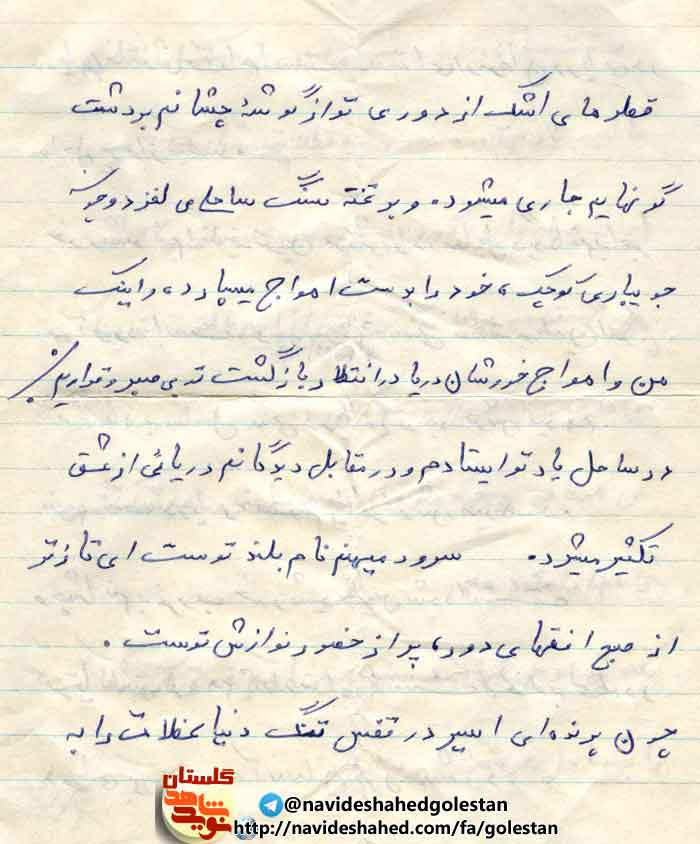 قطره های اشک از دوری تو از گوشهٔ چشمانم بر دشت
گونهایم جاری میشود و بر تخته سنگ ساحل می لغزد و چونه
جویباری کوچک، خود را بدست امواج میسپارد، و اینک
من و امواج خروشان دریا در انتظار بازگشت تو بی صبر و قراریم.
در ساحل یاد تو ایستادم و در مقابل دیدگانم دریائی از عشق
تکثیر میشود. سرود میهنم نام بلند توست ای تازه‌تر
از صبح افقهای دور، پر از حضور نوازش توست.
چون پرنده‌ای اسیر در قفس تنگ دنیا لحظات را به
گلستان
نوید شاهد
@navideshahedgolestan
http://navideshahed.com/fa/golestan